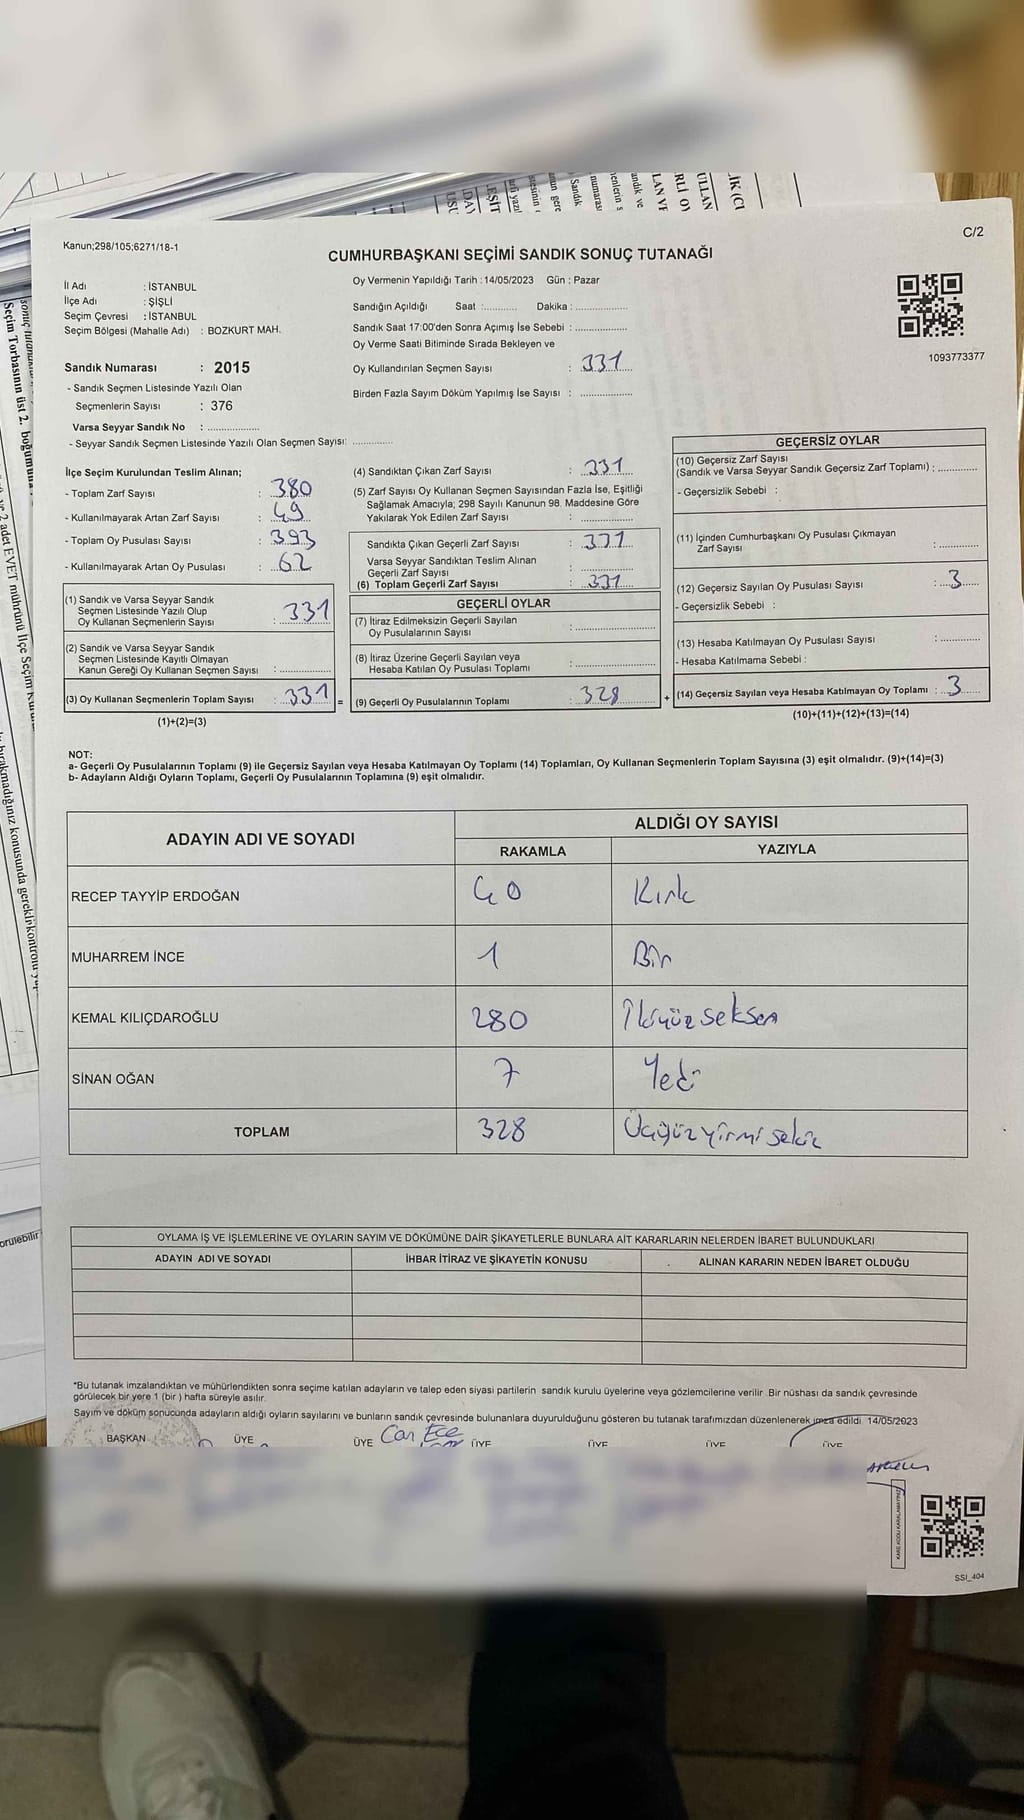 Kanun;298/105;6271/18-1
C/2
CUMHURBAŞKANI SEÇİMİ SANDIK SONUÇ TUTANAĞI
İl Adı : İSTANBUL
İlçe Adı : ŞİŞLİ
Seçim Çevresi : İSTANBUL
Seçim Bölgesi (Mahalle Adı) : BOZKURT MAH.
Sandık Numarası : 2015
- Sandık Seçmen Listesinde Yazılı Olan
Seçmenlerin Sayısı : 376
Varsa Seyyar Sandık No : ....................
- Seyyar Sandık Seçmen Listesinde Yazılı Olan Seçmen Sayısı: ..............
Oy Vermenin Yapıldığı Tarih : 14/05/2023 Gün : Pazar
Sandığın Açıldığı Saat :............ Dakika : ..................
Sandık Saat 17:00'den Sonra Açımış İse Sebebi : ..................
Oy Verme Saati Bitiminde Sırada Bekleyen ve
Oy Kullandırılan Seçmen Sayısı : 331
Birden Fazla Sayım Döküm Yapılmış İse Sayısı : ..................
1093773377
İlçe Seçim Kurulundan Teslim Alınan;
- Toplam Zarf Sayısı : 380
- Kullanılmayarak Artan Zarf Sayısı : 49
- Toplam Oy Pusulası Sayısı : 393
- Kullanılmayarak Artan Oy Pusulası : 62
(1) Sandık ve Varsa Seyyar Sandık
Seçmen Listesinde Yazılı Olup
Oy Kullanan Seçmenlerin Sayısı : 331
(2) Sandık ve Varsa Seyyar Sandık
Seçmen Listesinde Kayıtlı Olmayan
Kanun Gereği Oy Kullanan Seçmen Sayısı :..................
(3) Oy Kullanan Seçmenlerin Toplam Sayısı : 331 =
(1)+(2)=(3)
(4) Sandıktan Çıkan Zarf Sayısı : 331
(5) Zarf Sayısı Oy Kullanan Seçmen Sayısından Fazla İse, Eşitliği
Sağlamak Amacıyla; 298 Sayılı Kanunun 98. Maddesine Göre
Yakılarak Yok Edilen Zarf Sayısı : ..................
Sandıkta Çıkan Geçerli Zarf Sayısı : 331
Varsa Seyyar Sandıktan Teslim Alınan
Geçerli Zarf Sayısı : ..................
(6) Toplam Geçerli Zarf Sayısı : 331
GEÇERLİ OYLAR
(7) İtiraz Edilmeksizin Geçerli Sayılan
Oy Pusulalarının Sayısı : ..................
(8) İtiraz Üzerine Geçerli Sayılan veya
Hesaba Katılan Oy Pusulası Toplamı : ..................
(9) Geçerli Oy Pusulalarının Toplamı : 328 +
GEÇERSİZ OYLAR
(10) Geçersiz Zarf Sayısı
(Sandık ve Varsa Seyyar Sandık Geçersiz Zarf Toplamı) : ............
- Geçersizlik Sebebi :
(11) İçinden Cumhurbaşkanı Oy Pusulası Çıkmayan
Zarf Sayısı : ............
(12) Geçersiz Sayılan Oy Pusulası Sayısı : 3
- Geçersizlik Sebebi :
(13) Hesaba Katılmayan Oy Pusulası Sayısı : ............
- Hesaba Katılmama Sebebi :
(14) Geçersiz Sayılan veya Hesaba Katılmayan Oy Toplamı : 3
(10)+(11)+(12)+(13)=(14)
NOT:
a- Geçerli Oy Pusulalarının Toplamı (9) ile Geçersiz Sayılan veya Hesaba Katılmayan Oy Toplamı (14) Toplamları, Oy Kullanan Seçmenlerin Toplam Sayısına (3) eşit olmalıdır. (9)+(14)=(3)
b- Adayların Aldığı Oyların Toplamı, Geçerli Oy Pusulalarının Toplamına (9) eşit olmalıdır.
ADAYIN ADI VE SOYADI
ALDIĞI OY SAYISI
RAKAMLA YAZIYLA
RECEP TAYYİP ERDOĞAN 40 Kırk
MUHARREM İNCE 1 Bir
KEMAL KILIÇDAROĞLU 280 İkiyüz seksen
SİNAN OĞAN 7 Yedi
TOPLAM 328 Üçyüz yirmi sekiz
OYLAMA İŞ VE İŞLEMLERİNE VE OYLARIN SAYIM VE DÖKÜMÜNE DAİR ŞİKAYETLERLE BUNLARA AİT KARARLARIN NELERDEN İBARET BULUNDUKLARI
ADAYIN ADI VE SOYADI İHBAR İTİRAZ VE ŞİKAYETİN KONUSU ALINAN KARARIN NEDEN İBARET OLDUĞU
*Bu tutanak imzalandıktan ve mühürlendikten sonra seçime katılan adayların ve talep eden siyasi partilerin sandık kurulu üyelerine veya gözlemcilerine verilir .Bir nüshası da sandık çevresinde
görülecek bir yere 1 (bir ) hafta süreyle asılır.
Sayım ve döküm sonucunda adayların aldığı oyların sayılarını ve bunların sandık çevresinde bulunanlara duyurulduğunu gösteren bu tutanak tarafımızdan düzenlenerek imza edildi. 14/05/2023
BAŞKAN ÜYE ÜYE Can Ece ÜYE ÜYE ÜYE ÜYE
KARE KODU KARALAMAYINIZ
SSI_404